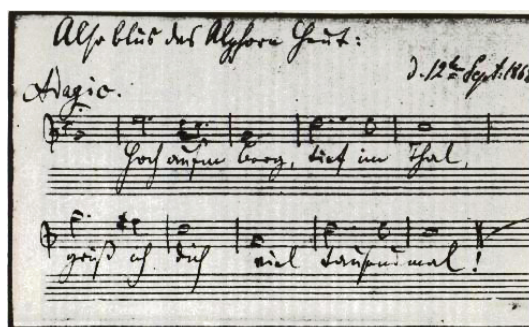 Also blus das Alphorn heut:
d. 12ten Sept: 186
Adagio.
Hoch aufm Berg, tief im Thal,
grüß ich dich viel tausendmal!